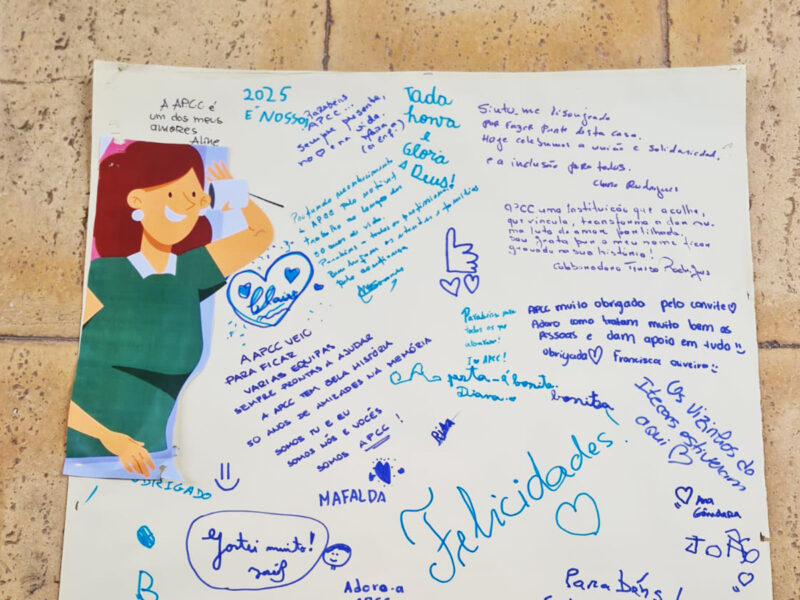 A APCC é
um dos meus
amores
Aline
2025
É NOSSO!
Parabéns
APCC...
sempre presente,
no ♡ e na vida.
Toda
honra
e
Glória
A Deus!
Sinto-me
por fazer parte desta casa.
Hoje celebramos a união e solidariedade,
e a inclusão para todos.
Rodrigues
APCC uma instituição que acolhe,
que vincula, transforma a dor numa
luta de amor partilhada,
sou grata por o meu nome ficar
gravado na sua história!
a APCC pelo notável
trabalho ao longo dos
50 anos de vida.
Parabéns a todos os profissionais
Claire
Parabéns para
todos os que
I ♡ APCC!
APCC muito obrigado pelo convite♡
Adoro como tratam muito bem as
Pessoas e dam apoio em tudo
obrigada♡ Francisca oliveira
A APCC VEIO
PARA FICAR
VARIAS EQUIPAS
SEMPRE PRONTAS A AJUDAR
A APCC TEM BELA HISTÓRIA
50 ANOS DE AMIZADES NA MEMÓRIA
SOMOS TU E EU
SOMOS NÓS E VOCÊS
SOMOS APCC!
festa é bonita
Diana
bonitsa
Rita
Os vizinhos do
estiveram
aqui ♡
Ana
Gândara
JOÃO
OBRIGADO
MAFALDA
Felicidades!
Gostei muito!
B
Adoro a
APCC
Parabéns!